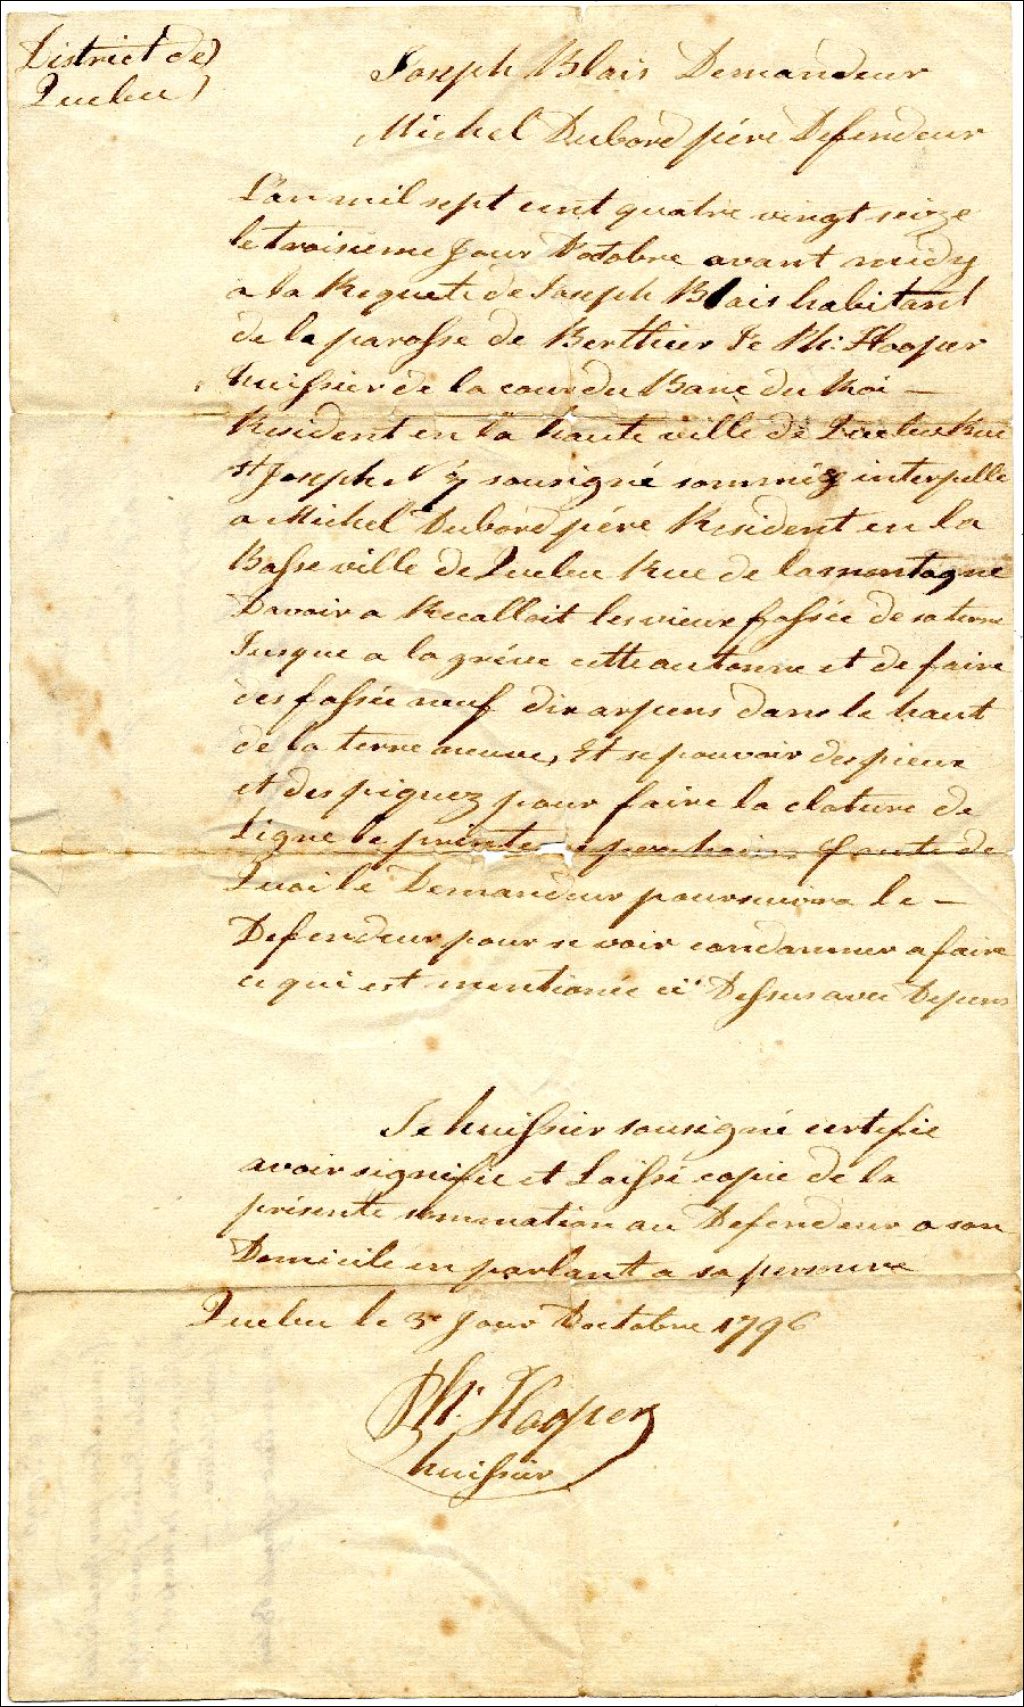 District de
Quebec
Joseph Blais Demandeur
Michel Dubord pére Defendeur
L'an mil sept cent quatre vingt seize
le troisieme Jour D'octobre avant midy
a la Requete de Joseph Blais habitant
de la parosse de Berthier Je Ph: Hooper
huissier de la cour du Banc du Roi —
Resident en la haute ville de Quebec Rue
st Joseph N 7 sousigné sommé & interpelle
a Michel Dubord pére Resident en la
Basse ville de Quebec Rue de la montagne
Davoir a Recalloit les vieux fossée de sa terre
Jusque a la gréve cette autonne et de faire
des fossée neuf dix arpens dans le haut
de la terre neuve, Et se pouvoir des pieux
et des piquez pour faire la cloture de
Ligne le faute de
Quoi le Demandeur poursuivra le —
Defendeur pour se voir condamner a faire
ce qui est mentionée ci Dessus avec Depens
Je huissier sousigné certifie
avoir signifie et Laissé copie de la
présente sommation au Defendeur a son
Domicile en parlant a sa personne
Quebec le 3e Jour Doctobre 1796
Ph: Hooper
huissier